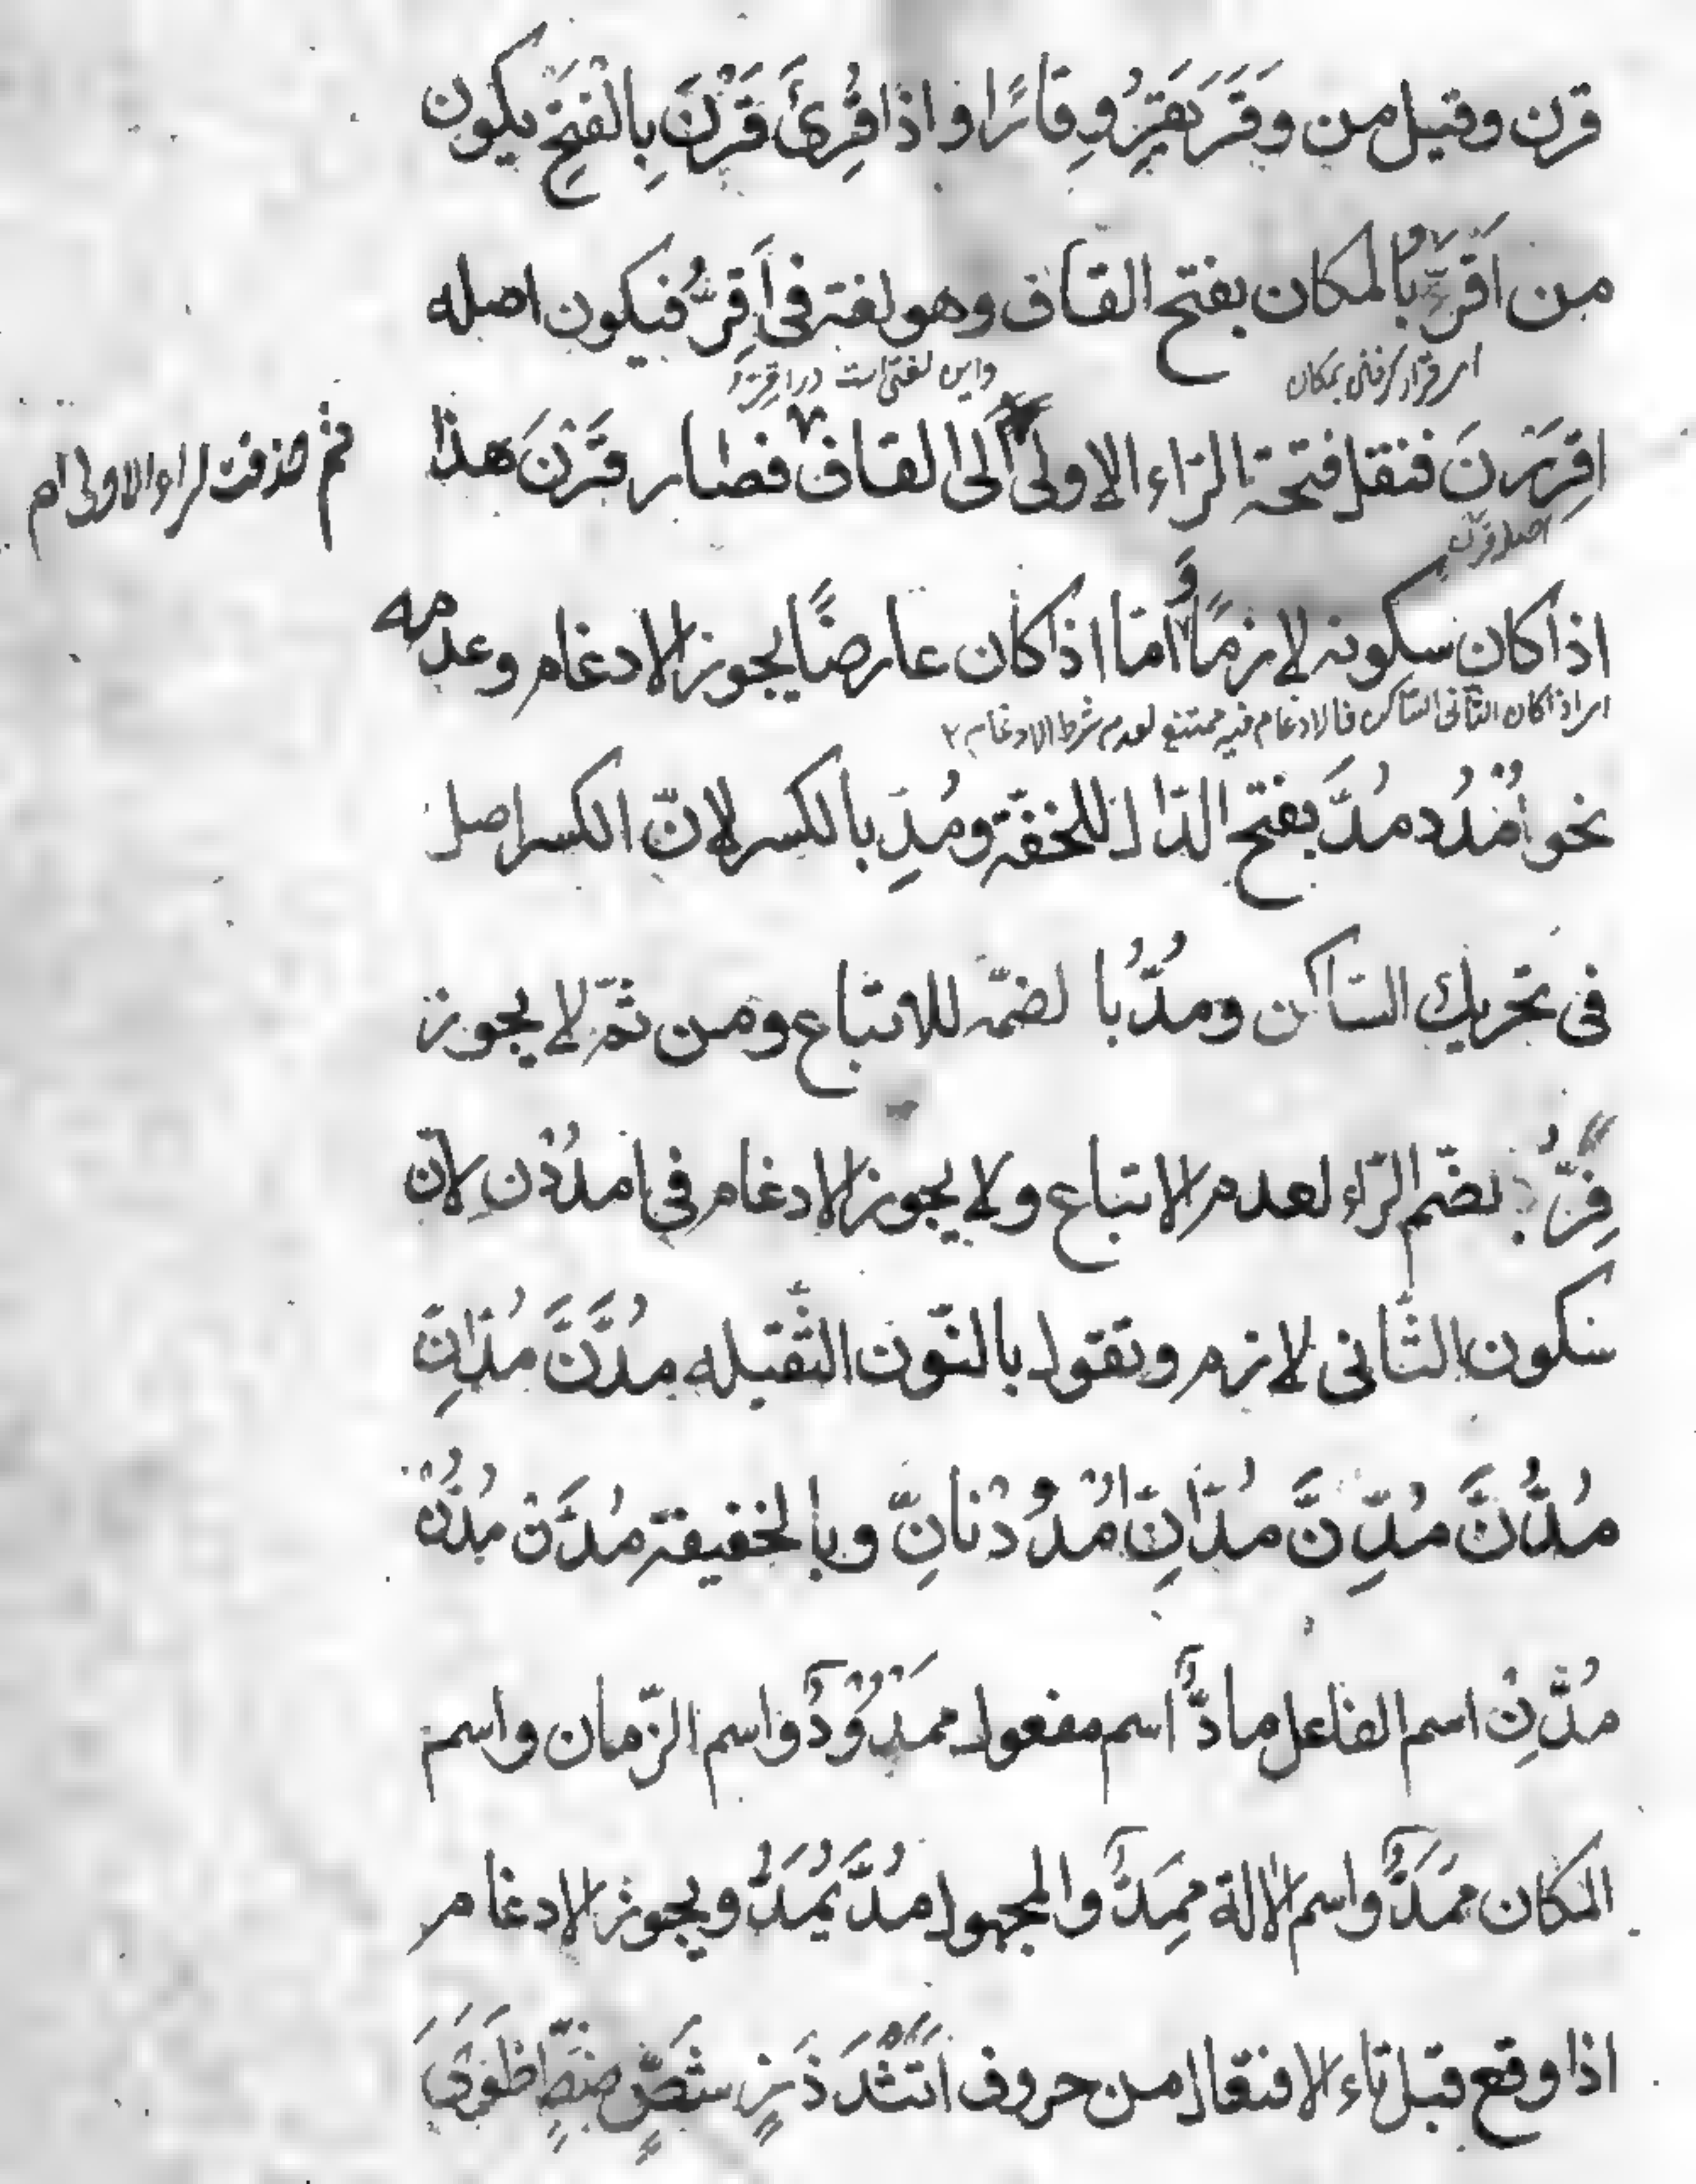 قرن وقيل من وَقَرَ يَقِرُ وِقارًا و اذا قُرِئَ قَرْنَ بِالْفَتْحِ يكون
من اَقَرُّ بالمكان بفتح القاف وهو لغة فى اَقِرُّ فيكون اصله
اى قرار گرفتن بمكان
واين لغتى است در اَقِرُّ
اِقرَرْنَ فنقل فتحة الرّاء الاولى الى القاف فصار قَرْنَ هذا
ثم حذفت الراء الاولى ام
اصله قرن
اذا كان سكونه لازمًا و امّا اذا كان عارضًا يجوز الادغام وعدمه
اى اذا كان الثّانى السّاكن فالادغام فيه ممتنع لعدم شرط الادغام ٢
نحو اُمْدُد مُدَّ بفتح الدّال للخفّة ومُدِّ بالكسر لانّ الكسر اصل
فى تحريك السّاكن ومُدُّ بالضمّه للاتباع ومن ثمّ لا يجوز
فِرُّ بضّم الرّاء لعدم الاتباع ولا يجوز الادغام فى امدُدْن لانّ
سكون الثّانى لازم وتقول بالنّون الثّقيله مُدَّنَّ مُدّانِّ
مُدُّنَّ مُدِّنَّ مُدّانِّ اُمْدُدْنانِّ وبالخفيفة مُدَّنْ مُدُّنْ
مُدِّنْ اسم الفاعل مادٌّ اسم مفعول ممدُوْدٌ واسم الزّمان واسم
المكان مَمَدٌّ واسم الالة مِمَدٌّ والمجهول مُدَّ يُمَدُّ ويجوز الادغام
اذا وقع قبل تاء الافتعال من حروف اَتَثَدَ ذَزٍ سَشَصٍّ ضَطٍّ ظَوَىَ